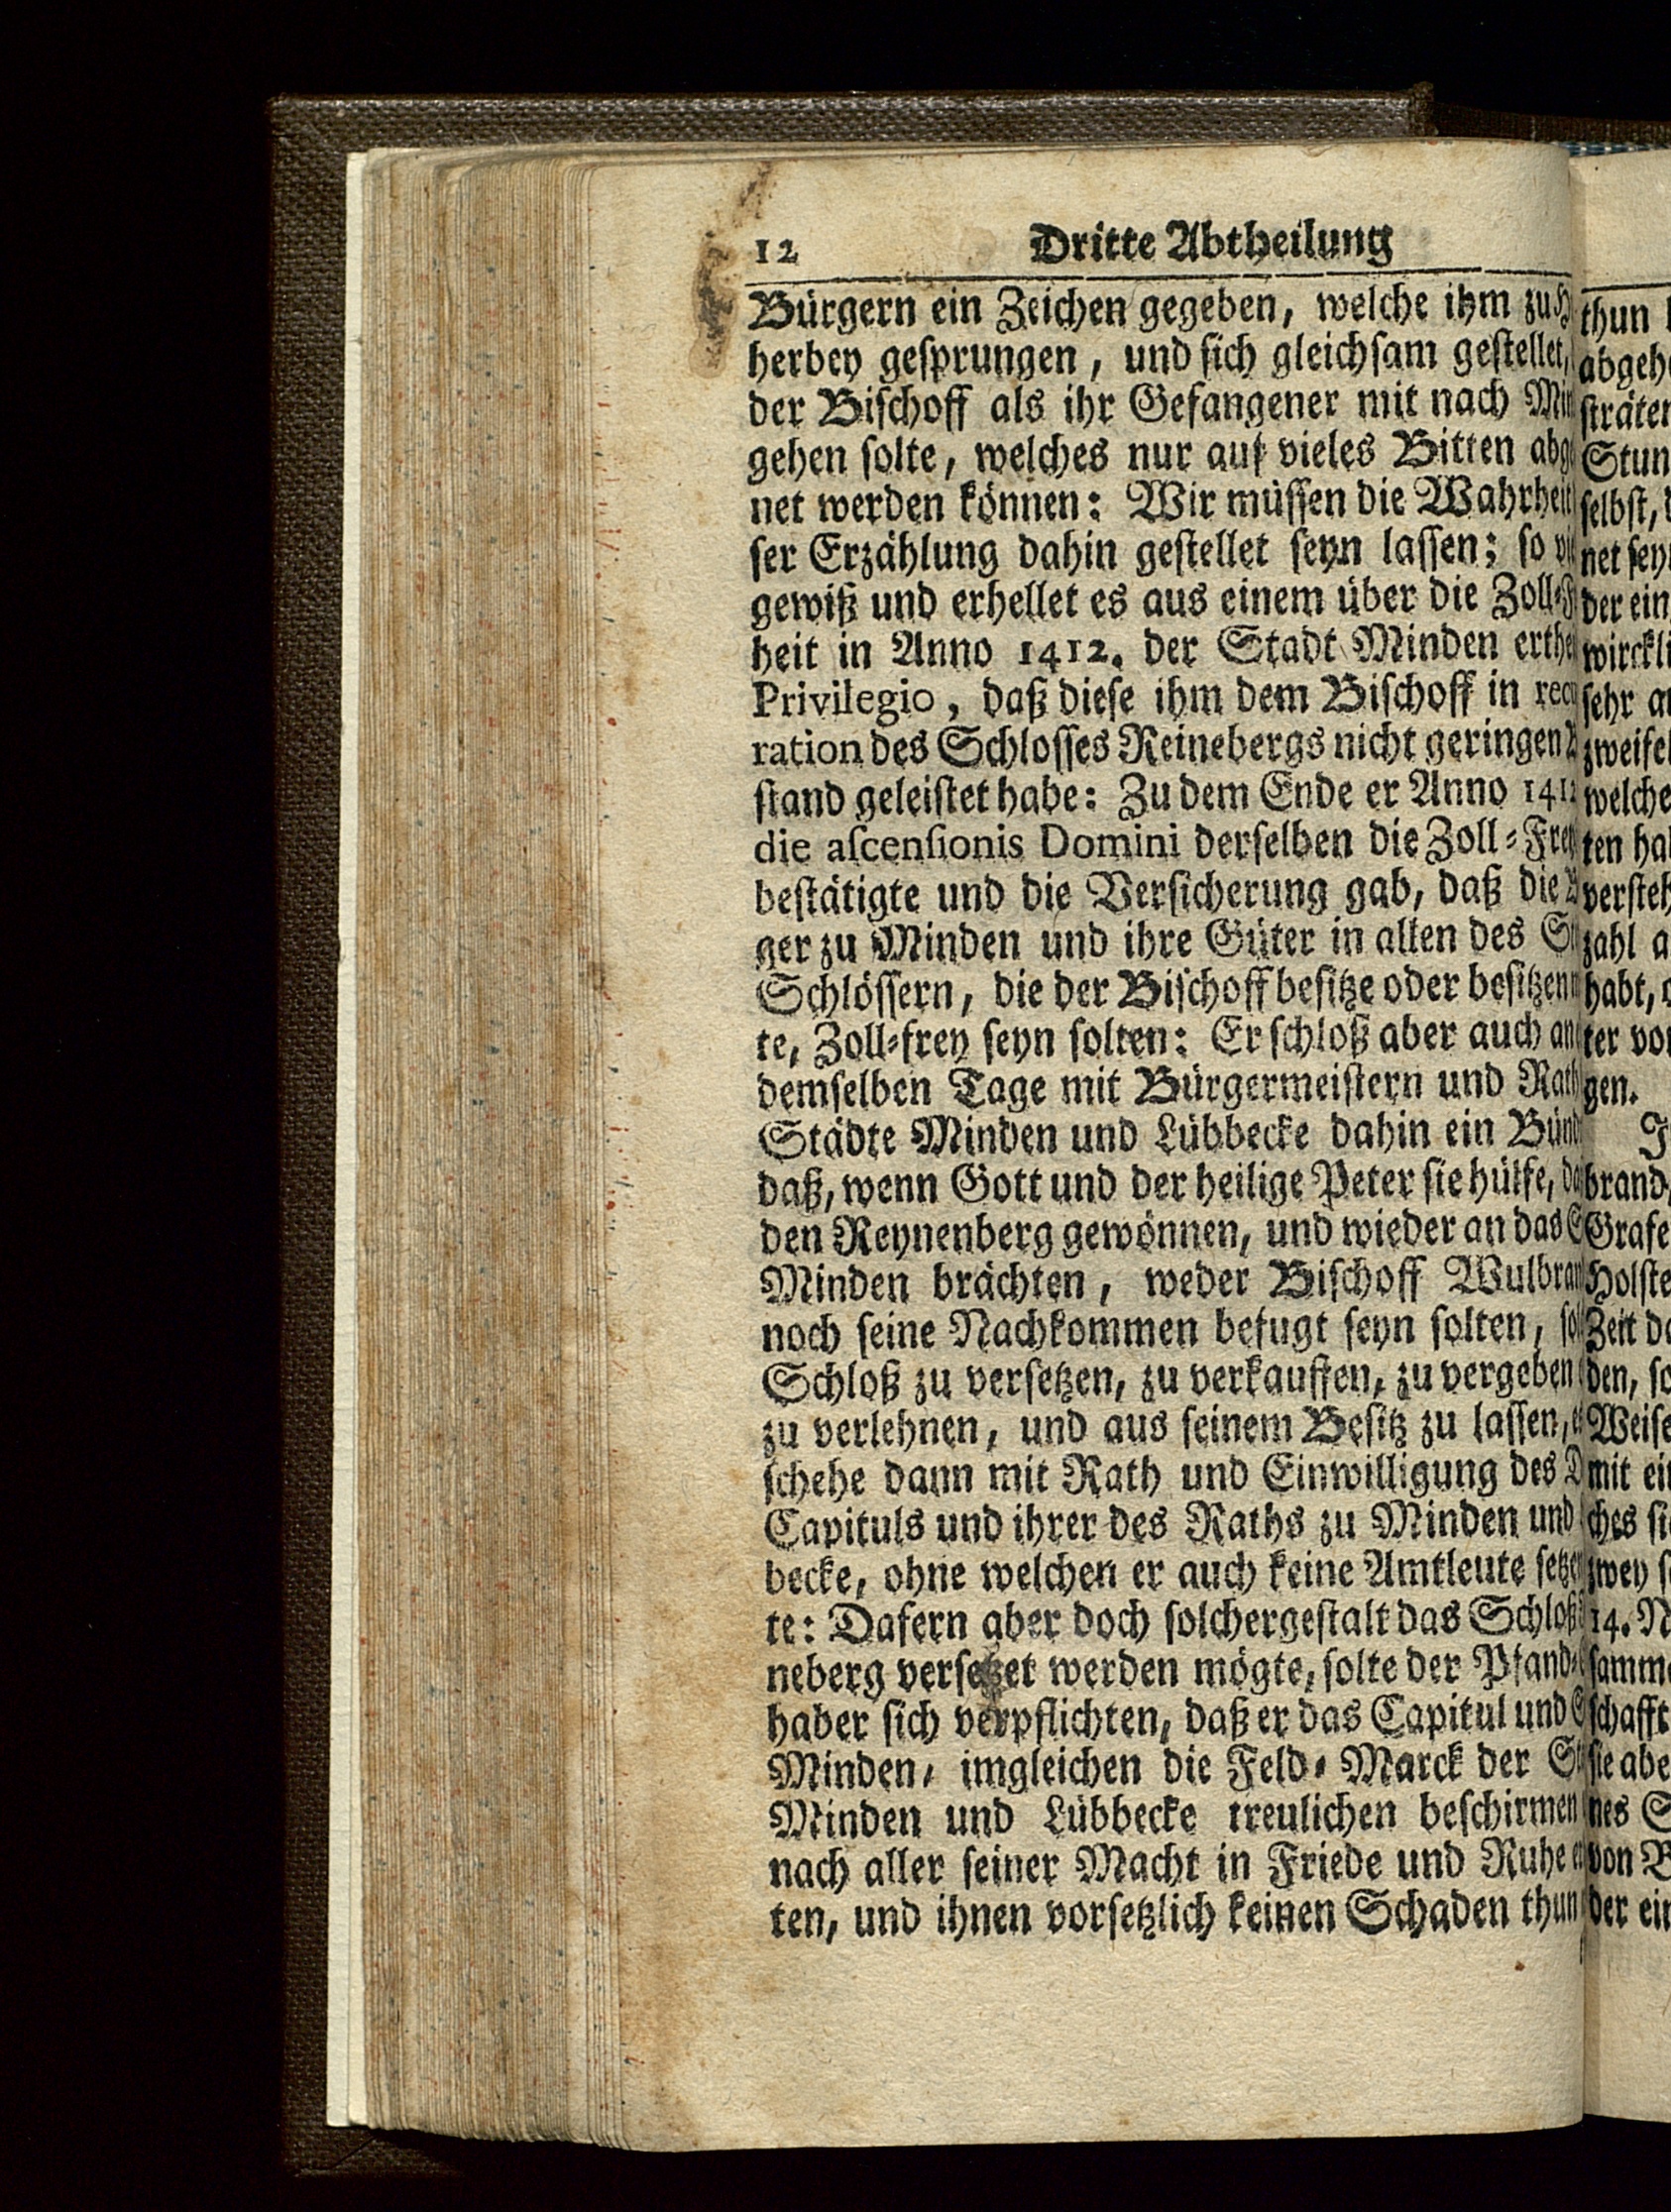 12 Dritte Abtheilung
Bürgern ein Zeichen gegeben, welche ihm zu
herbey gesprungen, und sich gleichsam gestellet,
der Bischoff als ihr Gefangener mit nach
gehen solte, welches nur auf vieles Bitten
net werden können: Wir müssen die Wahrheit
ser Erzählung dahin gestellet seyn lassen; so
gewiß und erhellet es aus einem über die Zoll-
heit in Anno 1412. der Stadt Minden
Privilegio, daß diese ihm dem Bischoff in
ration des Schlosses Reinebergs nicht geringen
stand geleistet habe: Zu dem Ende er Anno
die ascensionis Domini derselben die Zoll-
bestätigte und die Versicherung gab, daß die
ger zu Minden und ihre Güter in allen des
Schlössern, die der Bischoff besitze oder besitzen
te, Zoll-frey seyn solten: Er schloß aber auch
demselben Tage mit Bürgermeistern und
Städte Minden und Lübbecke dahin ein
daß, wenn Gott und der heilige Peter sie hülfe,
den Reynenberg gewönnen, und wieder an das
Minden brächten, weder Bischoff
noch seine Nachkommen befugt seyn solten,
Schloß zu versetzen, zu verkauffen, zu vergeben
zu verlehnen, und aus seinem Besitz zu lassen,
schehe dann mit Rath und Einwilligung des
Capituls und ihrer des Raths zu Minden und
becke, ohne welchen er auch keine Amtleute
te: Dafern aber doch solchergestalt das Schloß
neberg versetzet werden mögte, solte der Pfand-
haber sich verpflichten, daß er das Capitul und
Minden, imgleichen die Feld-Marck der
Minden und Lübbecke treulichen beschirmen
nach aller seiner Macht in Friede und Ruhe
ten, und ihnen vorsetzlich keinen Schaden thun
thun
selbst,
der ein
sehr
welche
ten
zahl
habt,
ter
gen.
Zeit
den,
mit
ches
zwey
14.
schafft
sie
nes
von
der